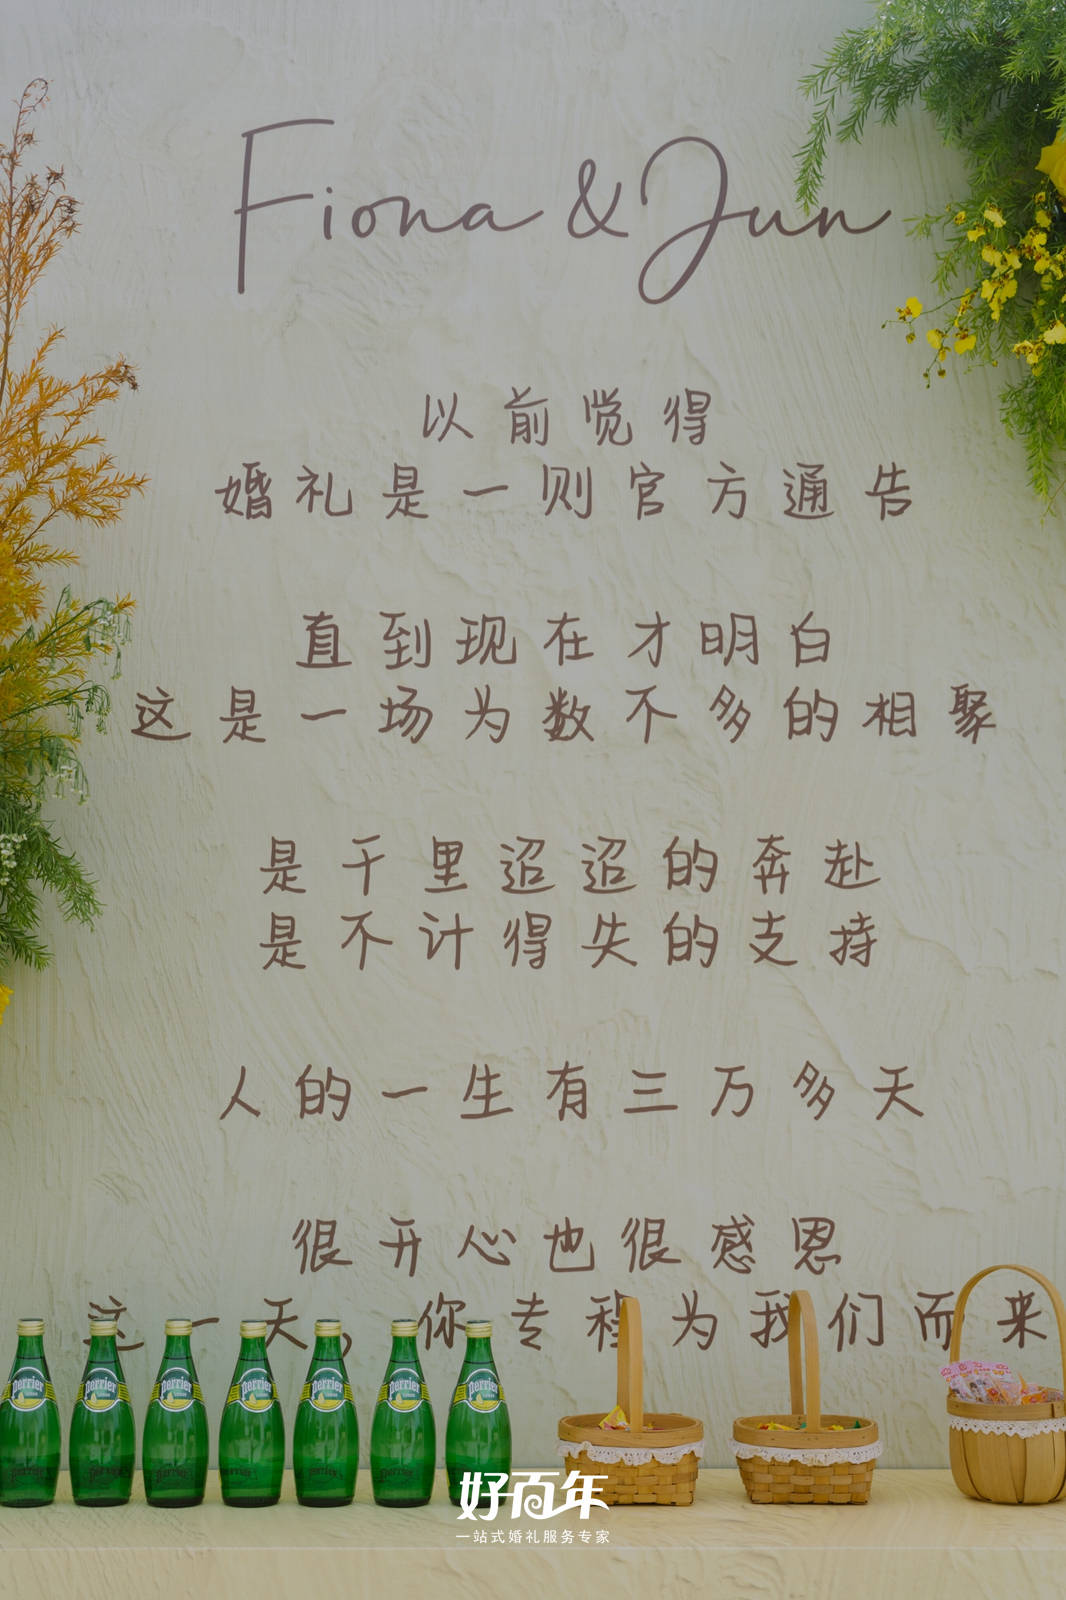 Fiona & Jun
以前觉得
婚礼是一则官方通告
直到现在才明白
这是一场为数不多的相聚
是千里迢迢的奔赴
是不计得失的支持
人的一生有三万多天
很开心也很感恩
这一天，你专程为我们而来
Perrier
Perrier
Perrier
Perrier
Perrier
Perrier
Perrier
好百年
一站式婚礼服务专家